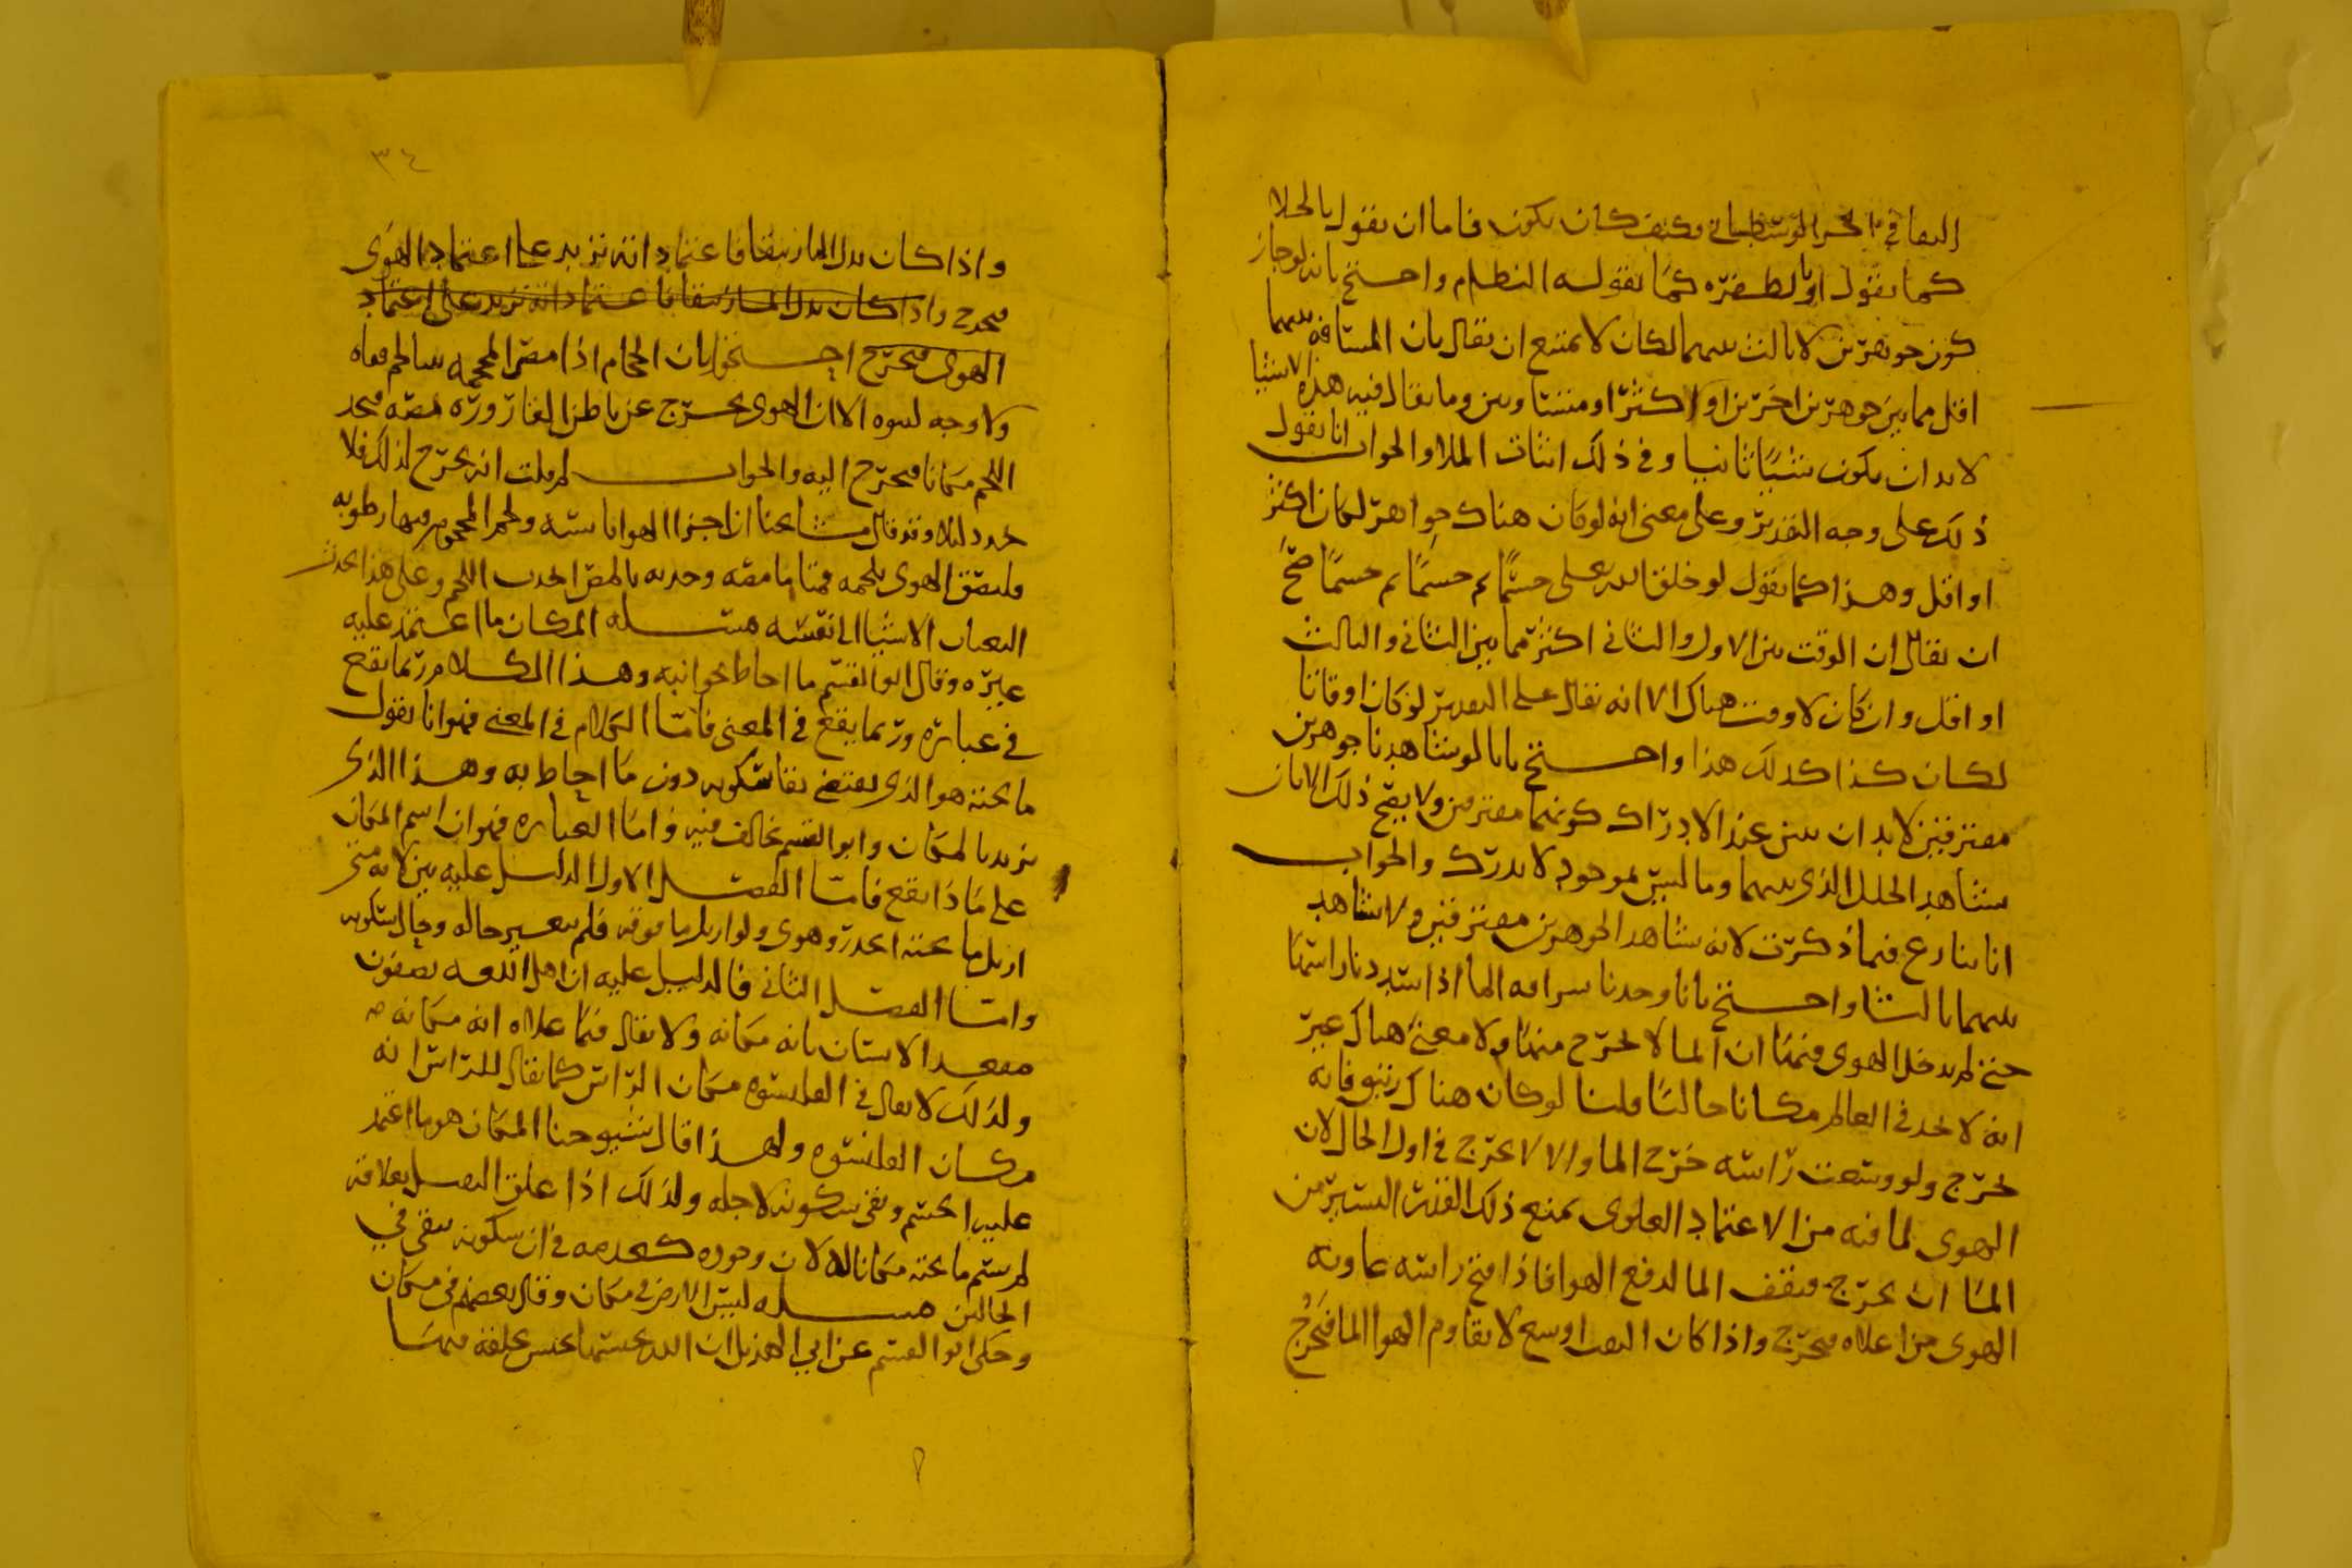 كما نقول او بالطفره كما يقوله النظام واحتج بانه لو جاز
كون جوهرين لا ثالث بينهما لكان لا يمتنع ان يقال بان المسافه بينهما
اقل مما بين جوهرين اخرين او اكثر او متساويين وما يقال فيه هذه الاشيا
لا بد ان يكون شيئا ثابتا وفي ذلك اثبات الملا والجواب انا نقول
ذلك على وجه التقدير وعلى معنى انه لو كان هناك جواهر لكان اكثر
او اقل وهذا كما نقول لو خلق الله تعلى جسما ثم جسما ثم جسما صح
ان يقال ان الوقت بين الاول والثاني اكثر مما بين الثاني والثالث
او اقل وان كان لا وقت هناك الا انه يقال على التقدير لو كان اوقاتا
لكان كذا كذلك هذا واحتج بانا لو شاهدنا جوهرين
مفترقين لا بد ان نتبين عند الادراك كونهما مفترقين ولا يصح ذلك الا بان
نشاهد الخلل الذي بينهما وما ليس بموجود لا يدرك والجواب
انا ننازع فيما ذكرت لانه نشاهد الجوهرين مفترقين ولا نشاهد
بينهما ثالثا واحتج بانا وجدنا سراقه الما اذا شددنا راسها
حتى لم يدخل الهوى فيها ان الما لا يخرج منها ولا معنى هناك غير
انه لا نجد في العالم مكانا خاليا قلنا لو كان هناك زيبق فانه
يخرج ولو وسعت راسه خرج الما والا لا يخرج في اول الحال لان
الهوى لما فيه من الاعتماد العلوى يمنع ذلك القدر اليسير من
الما ان يخرج فيقف الما لدفع الهوا فاذا فتح راسه عاونه
الهوى من اعلاه فيخرج واذا كان الثقب اوسع لا يقاوم الهوا الما فيخرج
٣٤
واذا كان بدل الما زيبقا فاعتماده انه يزيد على اعتماد الهوى
فيخرج واذا كان بدل الما زيبقا فاعتماده انه يزيد على اعتماد
الهوى فيخرج احتجوا بان الحجام اذا مص المحجمه
ولا وجه لنتوه الا ان الهوى يخرج عن باطن القاروره بمصه فيجد
اللحم مكانا فيخرج اليه والجواب لم قلت انه يخرج لذلك فلا
تجد دليلا وقد قال مشايخنا ان اجزا الهوا يابسه ولحم المحجوم فيها رطوبه
فليصق الهوى بلحمه فمتى ما مصه وجذبه بالمص انجذب اللحم وعلى هذا يحدث
الثعبان الاشيا الى نفسه مسله المكان ما اعتمد عليه
غيره وقال ابو القسم ما احاط بجوانبه وهذا الكلام ربما يقع
في عباره وربما يقع في المعنى فاما الكلام في المعنى فهو انا نقول
ما تحته هو الذي يقتضي بقا سكونه دون ما احاط به وهذا الذي
نريد بالمكان وابو القسم يخالف فيه واما العباره فهو ان اسم المكان
على ماذا يقع فاما الفصل الاول الدليل عليه بين لانه متى
ازيل ما تحته انحدر وهوى ولو ازيل ما فوقه فلم يتغير حاله وحال سكونه
واما الفصل الثاني فالدليل عليه ان اهل اللغه يصفون
مقعد الانسان بانه مكانه ولا يقال فيما علاه انه مكانه
ولذلك لا يقال في القلنسوه مكان الراس كما يقال للراس انه
مكان القلنسوه ولهذا قال شيوخنا المكان هو ما اعتمد
عليه الجسم وبقي سكونه لاجله ولذلك اذا علق القنديل بعلاقه
لم يسم ما تحته مكانا له لان وجوده كعدمه في ان سكونه يبقى في
الحالين مسله ليس الارض في مكان وقال بعضهم في مكان
وحكى ابو القسم عن ابي الهذيل ان الله